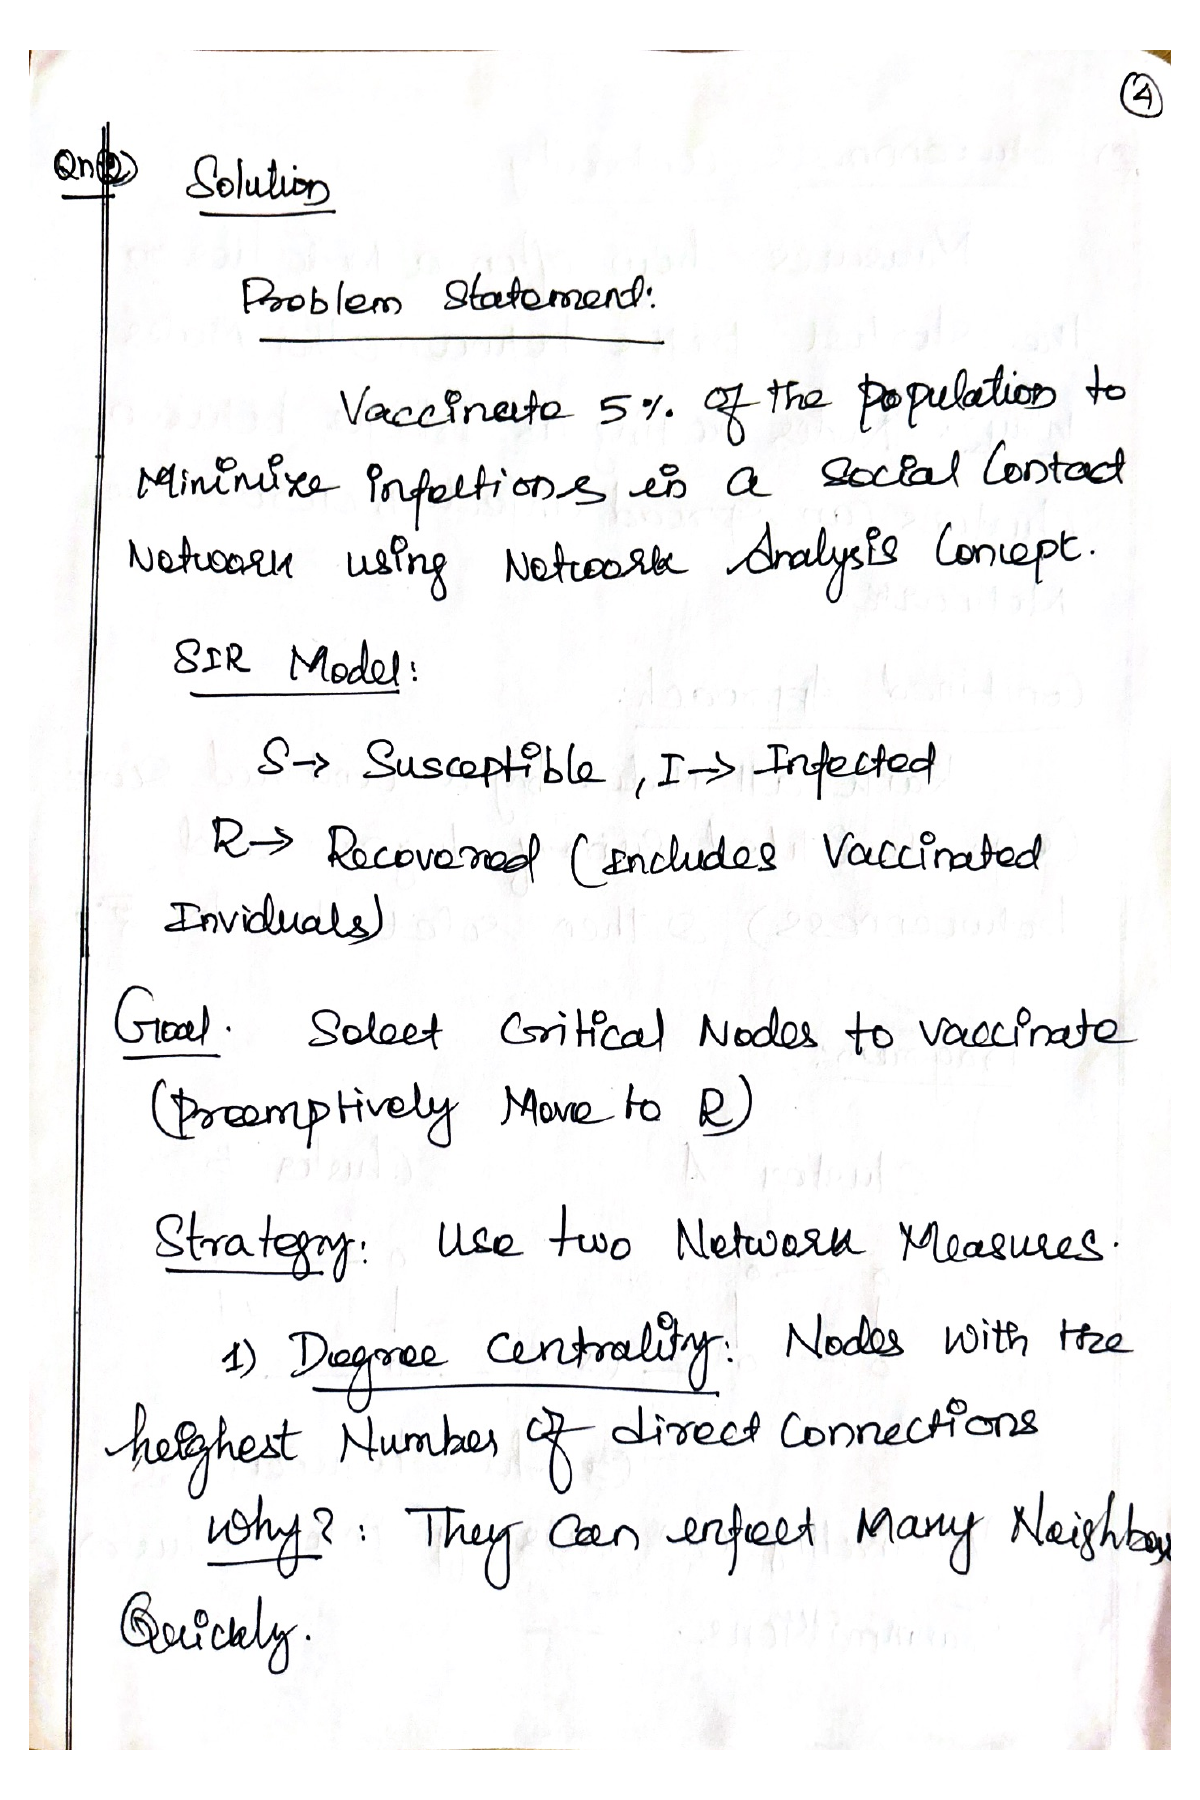 4
Qn(2) Solution
Problem Statement:
Vaccinate 5%. of the population to
Minimize infections in a Social Contact
Network using Network Analysis Concept.
SIR Model:
S → Susceptible , I → Infected
R → Recovered (includes Vaccinated
Inviduals)
Goal. Select Critical Nodes to vaccinate
(Preemptively Move to R)
Strategy: Use two Network Measures.
1) Degree Centrality: Nodes with the
heighest Number of direct Connections
Why? : They Can enfect Many Neighbors
Quickly.